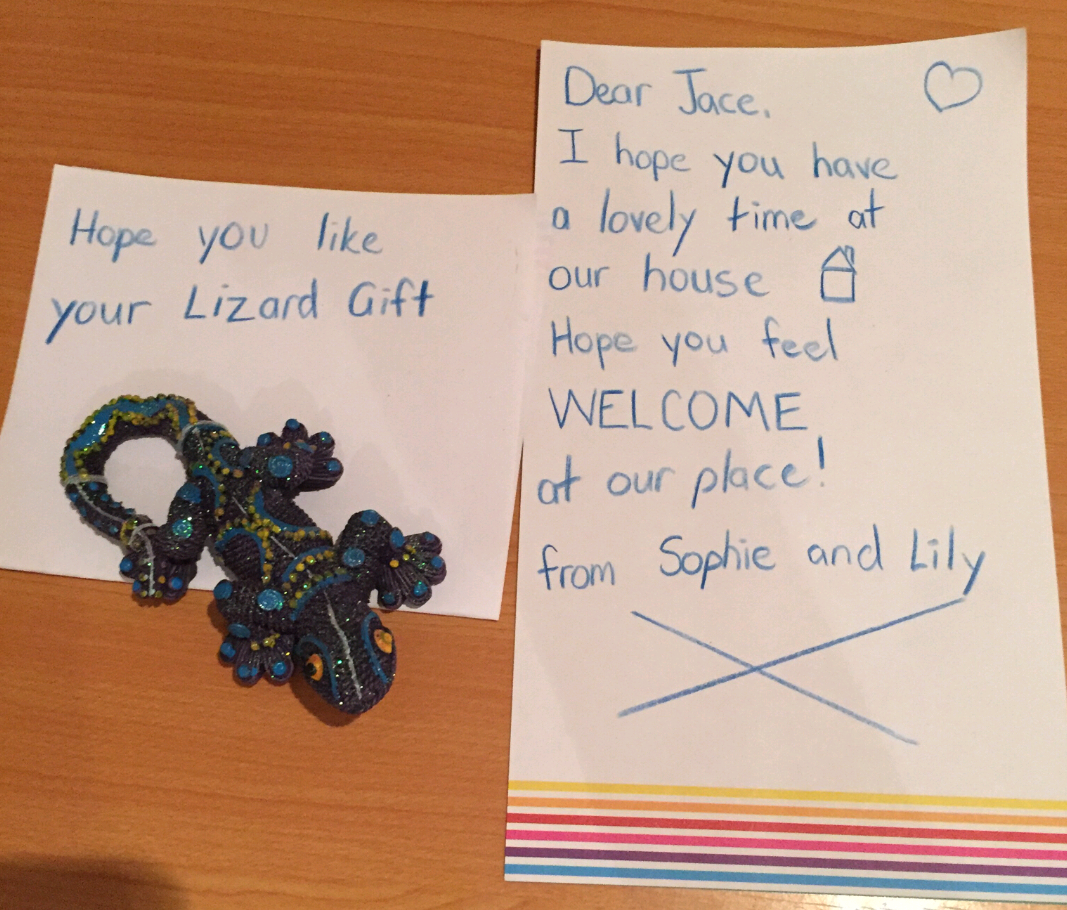 Hope you like
your Lizard Gift
Dear Jace.
I hope you have
a lovely time at
our house
Hope you feel
WELCOME
at our place!
from Sophie and Lily